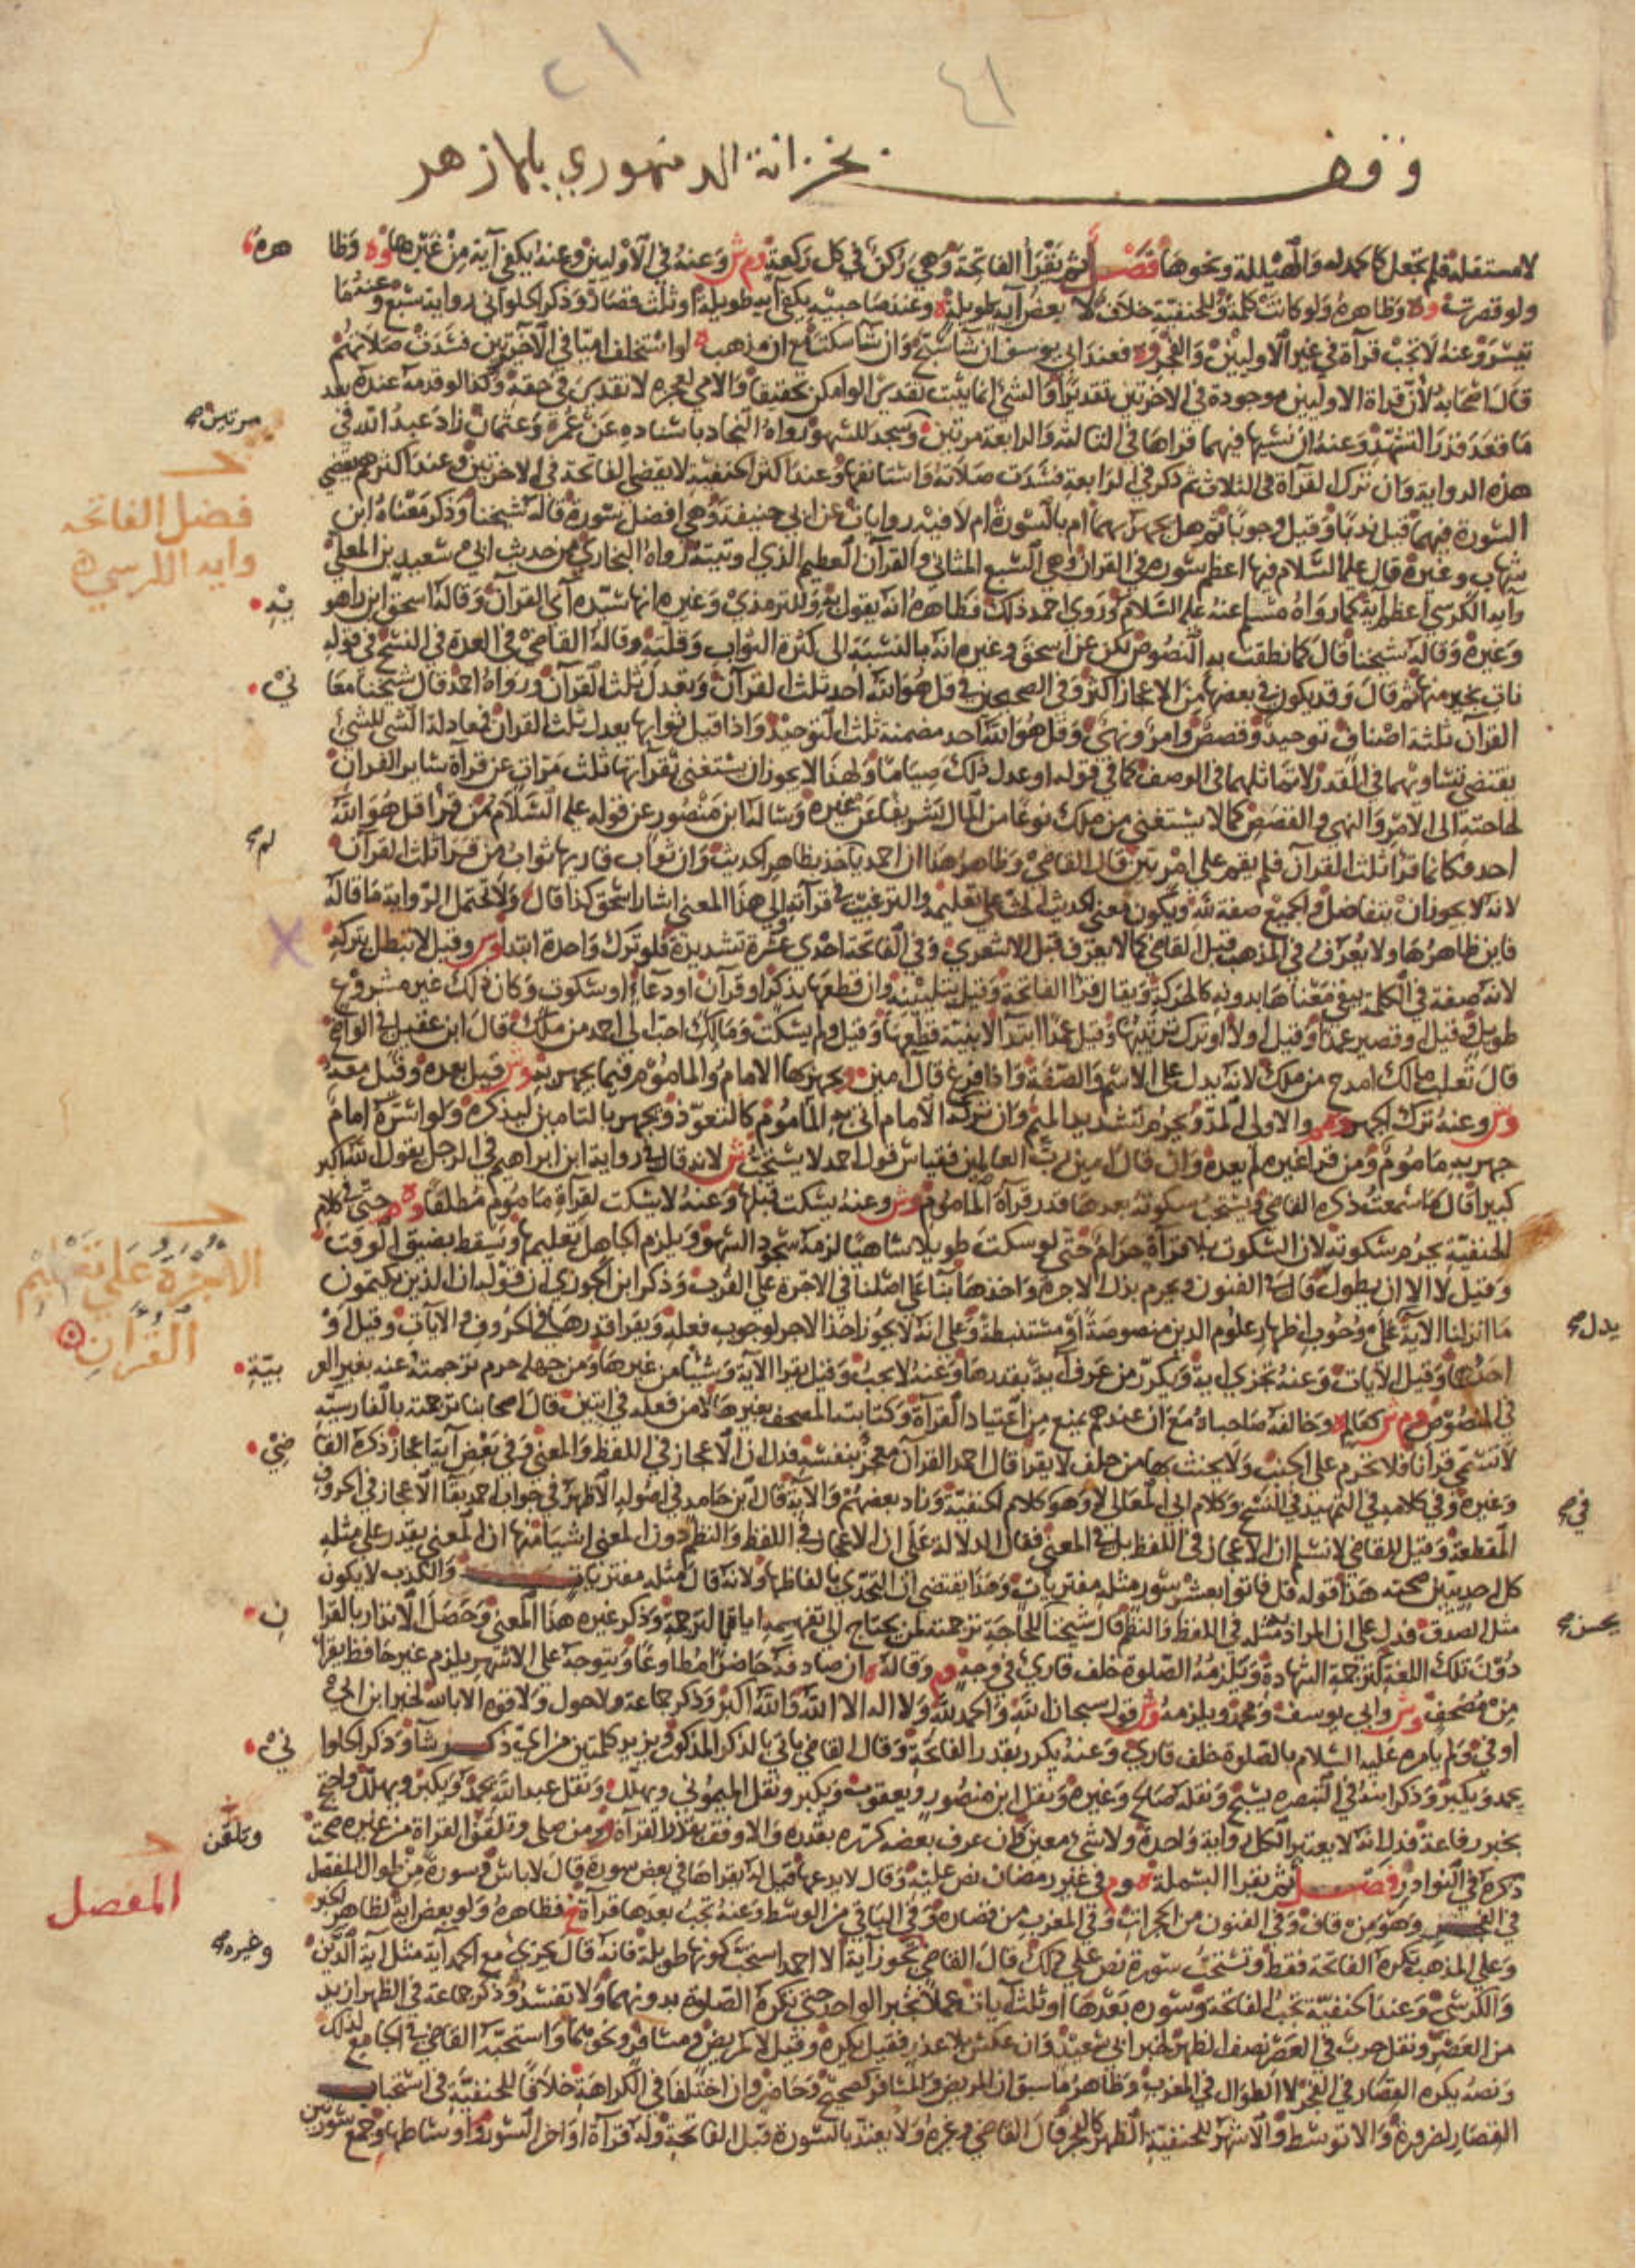 ٢١
٤١
وقف بخزانة الدمنهوري بالازهر
لا مستقلة فلم تجعل كالحمدله والهيللة ونحوها فصل ثم يقرأ الفاتحة وهي ركن في كل ركعة وم ش وعنه في الأوليين وعنه يكفي آية من غيرها وه وظا
هره
ولو قصرت وه وظاهره ولو كانت كلمة وللحنفية خلاف لا بعض آية طويلة وعند صاحبيه يكفي آية طويلة أو ثلث قصار وذكر الحلواني رواية سبع وعنه ما
تيسر وعنه لا تجب قراءة في غير الأوليين والفجر وه فعند أبي يوسف ان شا سبح وان شا سكت مع ان مذهبه لو استخلف اميا في الآخرتين فسدت صلاتهم
قال اصحابه لأن قراة الاوليين موجودة في الاخرتين تقديرا والشئ انما يثبت تقديرا لو امكن تحقيقا والامي لعجزه لا تقدير في حقه وكذا لو قدمه عنده بعد
ما قعد قدر التشهد وعنه ان نسيها فيهما قراها في الثالثة والرابعة مرتين وسجد للسهو رواه النجاد باسناده عن عمر وعثمان زاد عبد الله في
مرتين صح
هذه الرواية وان ترك القراة في الثلاث ثم ذكر في الرابعة فسدت صلاته واستانفها وعند أكثر الحنفية لا يقضي الفاتحة في الاخرتين وعند اكثرهم يقضي
السورة فيهما قيل ندبا وقيل وجوبا ثم هل يجهر بهما ام بالسورة ام لا فيه روايات عن ابي حنيفة وهي افضل سورة قاله شيخنا وذكر معناه ابن
فضل الفاتحه
وايه الكرسي
شهاب وغيره قال عليه السلام فيها اعظم سوره في القران وهي السبع المثاني والقرآن العظيم الذي اوتيته رواه البخاري من حديث ابي سعيد بن المعلى
وآية الكرسي اعظم آية كما رواه مسلم عنه عليه السلام وروى احمد ذلك فظاهره انه يقول به وللترمذي وغيره انها سيده آي القرآن وقاله اسحق ابن راهو
يه
وغيره وقاله شيخنا قال كما نطقت به النصوص لكن عن اسحق وغيره انه بالنسبة الى كثرة الثواب وقلته وقاله القاضي في العدة في النسخ في قوله
نات بخير منها ثم قال وقد يكون في بعضها من الاعجاز اكثر وفي الصحيحين في قل هو الله احد ثلث القرآن وتعدل ثلث القرآن ورواه احمد قال شيخنا معا
ني
القرآن ثلثة اصناف توحيد وقصص وامر ونهي وقل هو الله احد مضمنة ثلث التوحيد واذا قيل ثوابها يعدل ثلث القران فمعادلة الشي للشي
يقتضي تساويهما في القدر لا تماثلهما في الوصف كما في قوله او عدل ذلك صياما ولهذا لا يجوز ان يستغني بقرآتها ثلث مرات عن قرآة سائر القران
لحاجته الى الامر والنهي والقصص كما لا يستغني من ملك نوعا من المال شريفا عن غيره وساله ابن منصور عن قوله عليه السلام من قرا قل هو الله
احد فكانما قرا ثلث القرآن فلم يقم على امر بين قال القاضي وظاهر هذا ان احمد ياخذ بظاهر الحديث وان ثواب قاريها ثواب من قرا ثلث القرآن
لم صح
لانه لا يجوز ان يتفاضل في الجميع صفة لله ويكون معنى الحديث الحث على تعليمه والترغيب في قرآته والى هذا المعنى اشار اسحق كذا قال ولا تحتمل الرواية ما قاله
فاين ظاهرها ولا يعرف في المذهب قبل القاضي كما لا يعرف قبل الاشعري وفي الفاتحة احدى عشرة تشديدة فلو ترك واحدة ابتدا وش وقيل لا تبطل بتركه
لانه صفة في الكلمة يبقى معناها بدونه كالحركة ويقال قرا الفاتحة وقيل بتليينه وان قطعها بذكر او قرآن او دعاء او سكوت وكان ذلك غير مشروع
طويل وقيل او قصير عمدا وقيل او لا او ترك ترتيبها وقيل عمدا ابتدا لا بنية قطعها وقيل ولم يسكت ومالك احب الى احمد من ملك قال ابن عقيل في الواضح
قال ثعلب مالك امدح من ملك لانه يدل على الاسم والصفة واذا فرغ قال آمين ويجهر بها الامام والماموم فيما يجهر به وش قيل بعده وقيل معه
وش وعنه ترك الجهر وهم والاولى المد ويحرم تشديد الميم وان تركه الامام اتى به الماموم كالتعوذ ويجهر بالتامين ليذكره ولو اسره امام
جهر به ماموم ومن قرا غيره لم يعده وان قال امين رب العالمين فقياس قول احمد لا يستحب ش لانه قال في رواية ابن ابراهيم في الرجل يقول الله اكبر
كبيرا قال ما سمعت ذكره القاضي ويستحب سكوته بعدها قدر قرآة الماموم وش وعنه يسكت قبلها وعنه لا يسكت لقرآة ماموم مطلقا وه م حتى في كلام
الأجرة على تعليم
القرآن
الحنفية يحرم سكوته لان السكوت بلا قرآة حرام حتى لو سكت طويلا ساهيا لزمه سجود السهو ويلزم الجاهل تعليمها ويسقط بضيق الوقت
وقيل لا الا ان يطول قال في الفنون ويحرم بذل الاجرة واخذها بناء على اصلنا في الاجرة على القرب وذكر ابن الجوزي ان في قوله ان الذين يكتمون
ما انزلنا الآية على وجوب اظهار علوم الدين منصوصة او مستنبطة وعلى انه لا يجوز اخذ الاجر لوجوب فعله ويقرا قدرها في الحروف والآيات وقيل او
يدل صح
احدهما وقيل الآيات وعنه تجزي آية ويكرر من عرف آية بقدرها وعنه لا يجب وقيل يقرا الآية وشيئا من غيرها ومن جهله حرم ترجمته عنه بغير العر
بية
في المنصوص وم ش كعالم وخالفه صاحباه مع ان عندهم يمنع من اعتياد القرآة وكتابة المصحف بغيرها لا من فعله في ايتين قال اصحابنا ترجمته بالفارسية
لا تسمى قرآنا فلا تحرم على الجنب ولا يحنث بها من حلف لا يقرا قال احمد القرآن معجز بنفسه فدل ان الاعجاز في اللفظ والمعنى وفي بعض آية اعجاز ذكره القا
ضي
وغيره وفي كلامه في التمهيد في النسخ وكلام ابي المعالي لا وهو كلام الحنفية وزاد بعضهم والآية قال ابن حامد في اصوله الأظهر في جواب احمد بقا الاعجاز في الحروف
في صح
المقطعة وقيل للقاضي لا نسلم ان الاعجاز في اللفظ بل في المعنى فقال الدلالة على ان الاعجاز في اللفظ والنظم دون المعنى اشيا منها ان المعنى يقدر على مثله
كل احد يبين صحته هذا قوله قل فاتوا بعشر سور مثله مفتريات وهذا يقتضي ان التحدي بالفاظها ولانه قال مثله مفتريات والكذب لا يكون
مثل الصدق فدل على ان المراد مثله في اللفظ والنظم قال شيخنا للحاجة ترجمته لمن يحتاج الى تفهيمه اياه بالترجمة وذكر غيره هذا المعنى وحصل الانذار بالقرآ
ن
يحسن صح
دون تلك اللغة كترجمة الشهادة ويلزمه الصلوة خلف قاري في وجه وم وقاله ه ان صادفه حاضرا مطاوعا ويتوجه على الاشهر يلزم غير حافظ يقرا
من مصحف وش وابي يوسف ومحمد ويلزمه وش قول سبحان الله والحمد لله ولا اله الا الله والله اكبر وذكر جماعة ولا حول ولا قوه الا بالله لخبر ابن ابي
اوفى ولم يامره عليه السلام بالصلوة خلف قاري وعنه يكرر بقدر الفاتحة وقال القاضي ياتي بالذكر المذكور ويزيد كلمتين من اي ذكر شآ وذكر الحلوا
ني
يحمد ويكبر وذكر ابنه في التبصره يسبح ونقله صالح وغيره ونقل ابن منصور ويعقوب ويكبر ونقل الميموني ويهلل ونقل عبد الله يحمد ويكبر ويهلل واحتج
بخبر رفاعة فدل انه لا يعتبر الكل رواية واحدة ولا شي معين فان عرف بعضه كرره بقدره والا وقف بقدر القرآة ومن صلى وتلقف القراة من غيره صحت
وتلقن
ذكره في النوادر فصل ثم يقرا البسملة وم في غير رمضان نص عليه وقال لا يدعها قيل له يقراها في بعض سورة قال لا باس وسورة من طوال المفصل
المفصل
في الفجر وهو من قاف وفي الفنون من الحجرات وفي المغرب من قصاره وفي الباقي من الوسط وعنه تجب بعدها قراة خ فظاهره ولو بعض اية لظاهر الخبر
وعلى المذهب تكره الفاتحة فقط وتستحب سورة نص على ذلك قال القاضي تجوز آية الا احمد استحب كونها طويلة فانه قال تجزي مع الحمد آية مثل آية الدين
وغيره صح
والكرسي وعند الحنفية تجب الفاتحة وسوره بعدها او ثلث آيات عملا بخبر الواحد حتى تكره الصلوة بدونهما ولا تفسد وذكر جماعة في الظهر ازيد
من العصر ونقل حرب في العصر نصف الظهر لخبر ابي سعيد وان عكس بلا عذر فقيل يكره وقيل لا كمريض ومسافر ونحوهما واستحبه القاضي في الجامع لذلك
ونصه يكره القصار في الفجر لا الطوال في المغرب وظاهر ما سبق ان المريض والمسافر كصحيح وحاضر وان اختلفا في الكراهة خلافا للحنفية في استحباب
القصار لضرورة والا توسط والاشهر للحنفية الظهر كالفجر قال القاضي وغيره ولا يعتد بالسورة قبل الفاتحة وله قرآة اواخر السور واوساطها وجمع سورتين